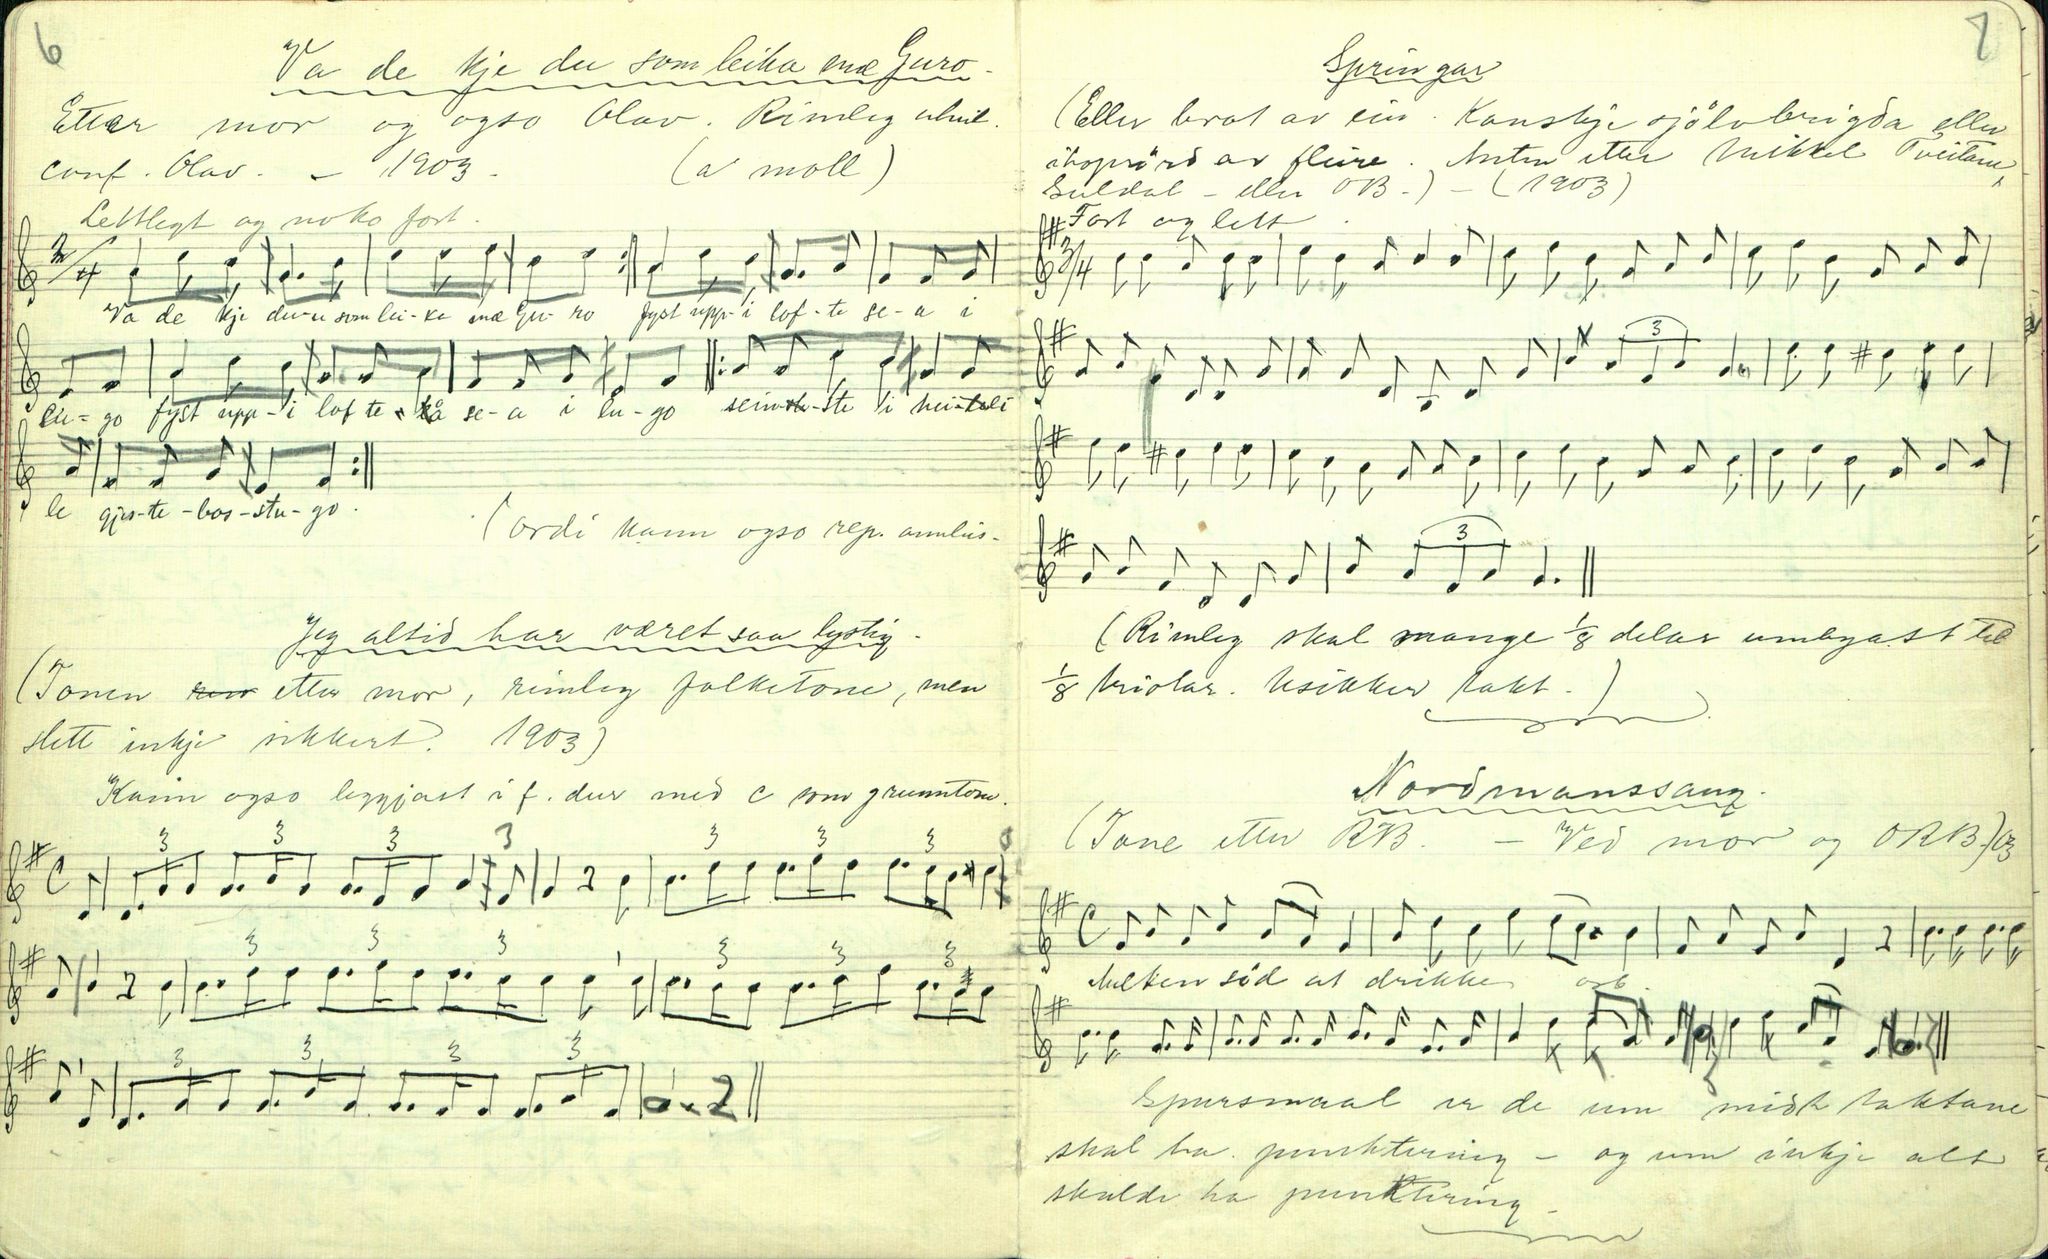 6
Va de kje du som leika mæ Guro.
Etter mor og ogso Olav. Rimleg
conf. Olav. – 1903. (a moll)
Lettlegt og noko fort.
2/4
Va de kje du-u som lei-ke mæ Gu-ro fyst upp-i lof-te se-a i
lu-go fyst upp-i lof-te så se-a i lu-go sein-ste i
le gjes-te-bos-stu-go.
(ordi kann ogso rep. annleis-
Jeg altid har været saa lystig.
(Tonen etter mor, rimleg folketone, men
slett inkje sikkert. 1903)
Kann ogso leggjast i f. dur med c som grunntone.
C 3 3 3 3 3 3 3
3 3 3 3 3 3
3 3 3 3
7
Springar
(Eller brot av ein. Kanskje sjölvbrigda eller
av fleire. Anten etter Mikkel Tveitane,
Suldal – eller OB.) – (1903)
Fort og lett.
3/4
3
3
(Rimleg skal mange 1/8 delar umbygast til
1/8 triolar. Usikker takt.)
Nordmanssang.
(Tone etter RB. – Ved mor og ORB.) 03
C
Melken söd at drikke osb.
Spursmaal er de um midt taktane
skal ha punktering – og um inkje alt
skulde ha punktering.